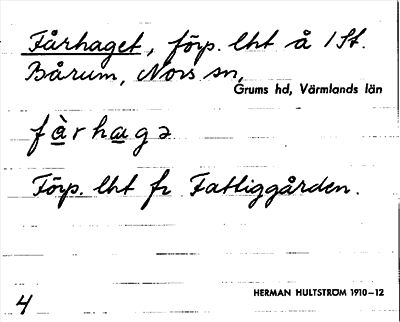 Fårhaget, förp. lht å 1 St.
Bårum, Nors sn,
Grums hd, Värmlands län
fàrhagə
Förp. lht fr Fattiggården.
HERMAN HULTSTRÖM 1910–12
4